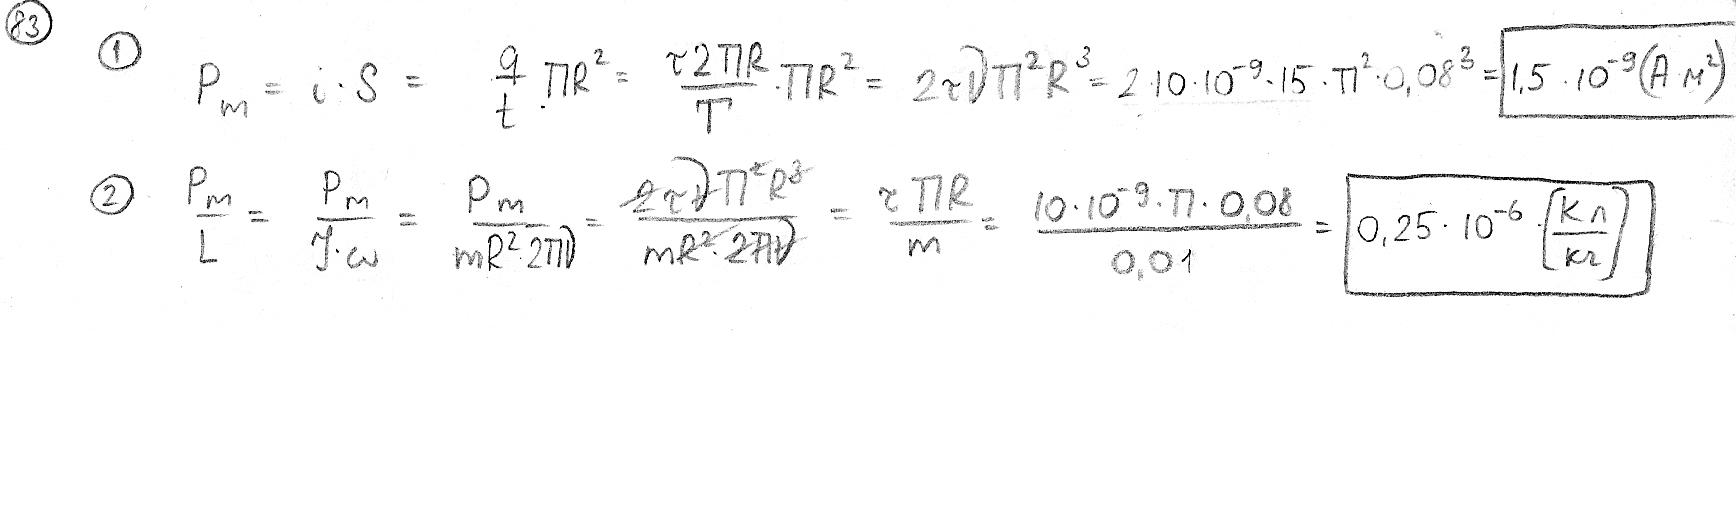 83
① P_m = i·S = q/t · ΠR² = τ2ΠR/T · ΠR² = 2τνΠ²R³ = 2·10·10⁻⁹·15·Π²·0,08³ = 1,5·10⁻⁹ (А м²)
② P_m/L = P_m/(J·ω) = P_m/(mR²2Πν) = 2τνΠ²R³/(mR²·2Πν) = τΠR/m = 10·10⁻⁹·Π·0,08/0,01 = 0,25·10⁻⁶ [Кл/кг]